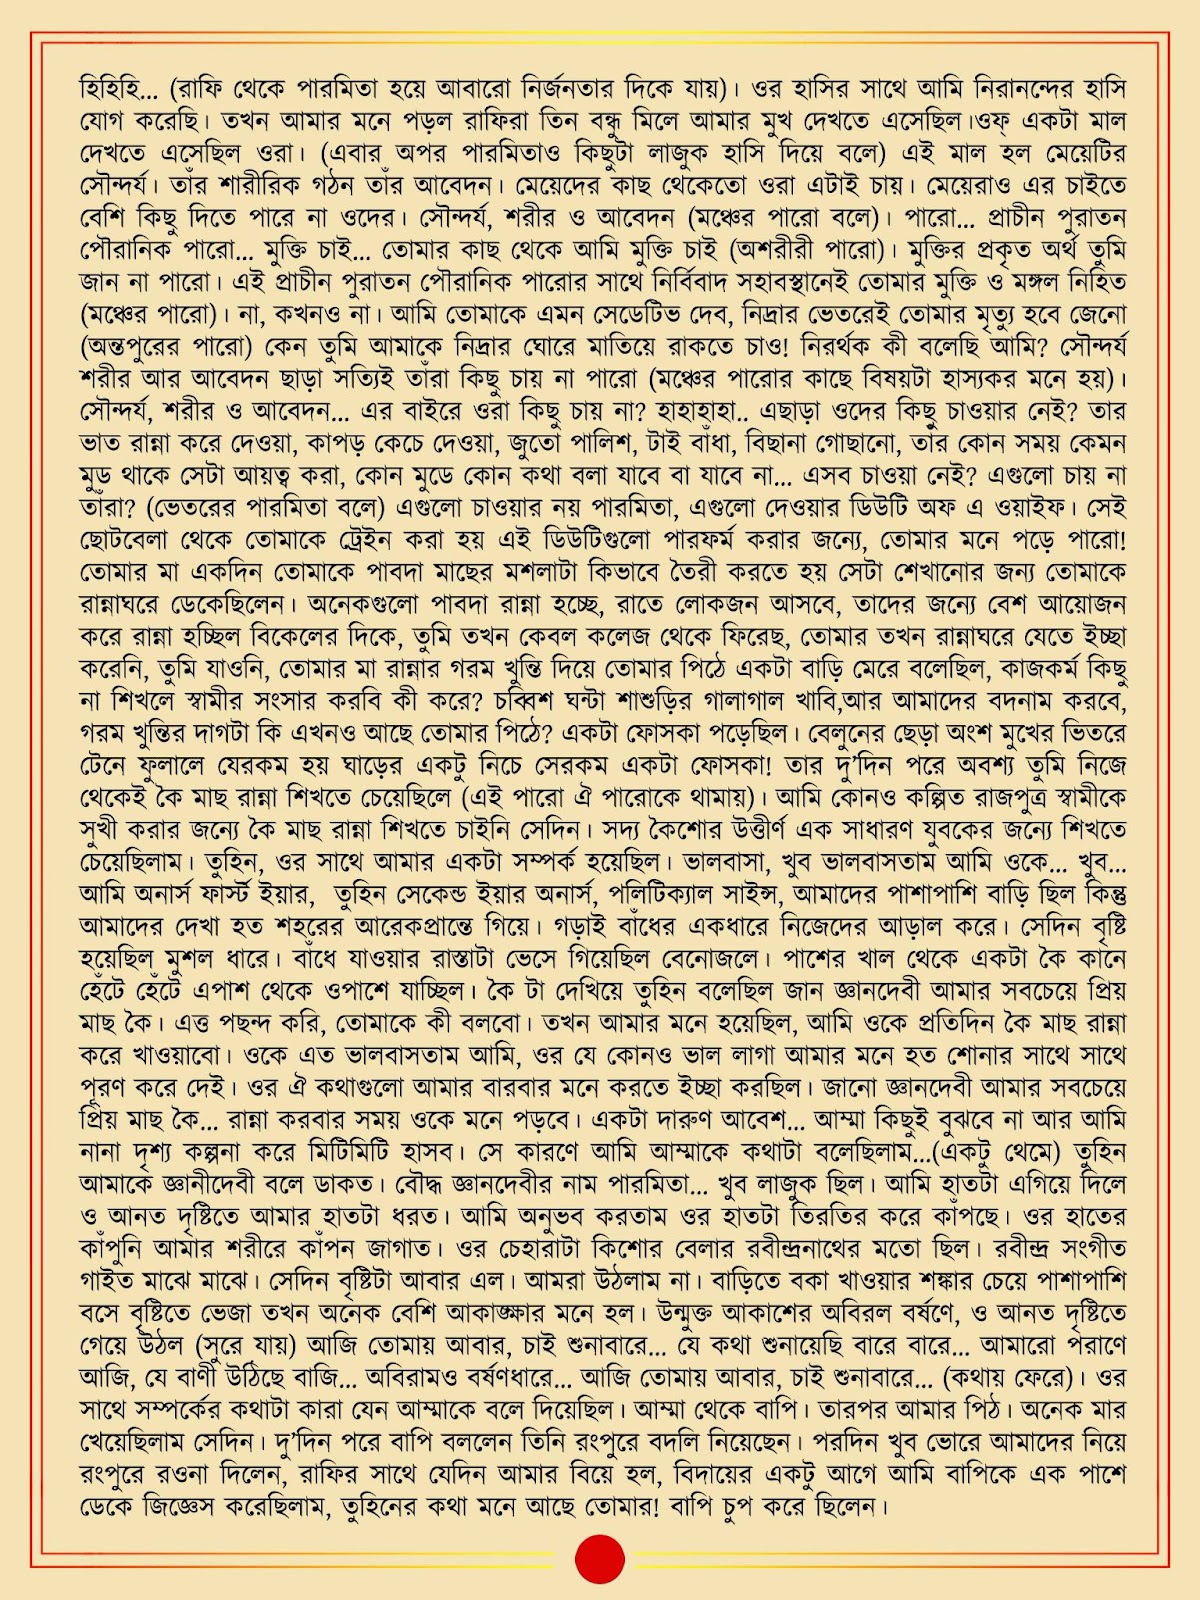 হিহিহি... (রাফি থেকে পারমিতা হয়ে আবারো নির্জনতার দিকে যায়)। ওর হাসির সাথে আমি নিরানন্দের হাসি
যোগ করেছি। তখন আমার মনে পড়ল রাফিরা তিন বন্ধু মিলে আমার মুখ দেখতে এসেছিল।ওফ্ একটা মাল
দেখতে এসেছিল ওরা। (এবার অপর পারমিতাও কিছুটা লাজুক হাসি দিয়ে বলে) এই মাল হল মেয়েটির
সৌন্দর্য। তাঁর শারীরিক গঠন তাঁর আবেদন। মেয়েদের কাছ থেকেতো ওরা এটাই চায়। মেয়েরাও এর চাইতে
বেশি কিছু দিতে পারে না ওদের। সৌন্দর্য, শরীর ও আবেদন (মঞ্চের পারো বলে)। পারো... প্রাচীন পুরাতন
পৌরানিক পারো... মুক্তি চাই... তোমার কাছ থেকে আমি মুক্তি চাই (অশরীরী পারো)। মুক্তির প্রকৃত অর্থ তুমি
জান না পারো। এই প্রাচীন পুরাতন পৌরানিক পারোর সাথে নির্বিবাদ সহাবস্থানেই তোমার মুক্তি ও মঙ্গল নিহিত
(মঞ্চের পারো)। না, কখনও না। আমি তোমাকে এমন সেডেটিভ দেব, নিদ্রার ভেতরেই তোমার মৃত্যু হবে জেনো
(অন্তপুরের পারো) কেন তুমি আমাকে নিদ্রার ঘোরে মাতিয়ে রাকতে চাও! নিরর্থক কী বলেছি আমি? সৌন্দর্য
শরীর আর আবেদন ছাড়া সত্যিই তাঁরা কিছু চায় না পারো (মঞ্চের পারোর কাছে বিষয়টা হাস্যকর মনে হয়)।
সৌন্দর্য, শরীর ও আবেদন... এর বাইরে ওরা কিছু চায় না? হাহাহাহা.. এছাড়া ওদের কিছু চাওয়ার নেই? তার
ভাত রান্না করে দেওয়া, কাপড় কেচে দেওয়া, জুতো পালিশ, টাই বাঁধা, বিছানা গোছানো, তাঁর কোন সময় কেমন
মুড থাকে সেটা আয়ত্ব করা, কোন মুডে কোন কথা বলা যাবে বা যাবে না... এসব চাওয়া নেই? এগুলো চায় না
তাঁরা? (ভেতরের পারমিতা বলে) এগুলো চাওয়ার নয় পারমিতা, এগুলো দেওয়ার ডিউটি অফ এ ওয়াইফ। সেই
ছোটবেলা থেকে তোমাকে ট্রেইন করা হয় এই ডিউটিগুলো পারফর্ম করার জন্যে, তোমার মনে পড়ে পারো!
তোমার মা একদিন তোমাকে পাবদা মাছের মশলাটা কিভাবে তৈরী করতে হয় সেটা শেখানোর জন্য তোমাকে
রান্নাঘরে ডেকেছিলেন। অনেকগুলো পাবদা রান্না হচ্ছে, রাতে লোকজন আসবে, তাদের জন্যে বেশ আয়োজন
করে রান্না হচ্ছিল বিকেলের দিকে, তুমি তখন কেবল কলেজ থেকে ফিরেছ, তোমার তখন রান্নাঘরে যেতে ইচ্ছা
করেনি, তুমি যাওনি, তোমার মা রান্নার গরম খুন্তি দিয়ে তোমার পিঠে একটা বাড়ি মেরে বলেছিল, কাজকর্ম কিছু
না শিখলে স্বামীর সংসার করবি কী করে? চব্বিশ ঘন্টা শাশুড়ির গালাগাল খাবি,আর আমাদের বদনাম করবে,
গরম খুন্তির দাগটা কি এখনও আছে তোমার পিঠে? একটা ফোসকা পড়েছিল। বেলুনের ছেড়া অংশ মুখের ভিতরে
টেনে ফুলালে যেরকম হয় ঘাড়ের একটু নিচে সেরকম একটা ফোসকা! তার দু'দিন পরে অবশ্য তুমি নিজে
থেকেই কৈ মাছ রান্না শিখতে চেয়েছিলে (এই পারো ঐ পারোকে থামায়)। আমি কোনও কল্পিত রাজপুত্র স্বামীকে
সুখী করার জন্যে কৈ মাছ রান্না শিখতে চাইনি সেদিন। সদ্য কৈশোর উত্তীর্ণ এক সাধারণ যুবকের জন্যে শিখতে
চেয়েছিলাম। তুহিন, ওর সাথে আমার একটা সম্পর্ক হয়েছিল। ভালবাসা, খুব ভালবাসতাম আমি ওকে... খুব...
আমি অনার্স ফার্স্ট ইয়ার,  তুহিন সেকেন্ড ইয়ার অনার্স, পলিটিক্যাল সাইন্স, আমাদের পাশাপাশি বাড়ি ছিল কিন্তু
আমাদের দেখা হত শহরের আরেকপ্রান্তে গিয়ে। গড়াই বাঁধের একধারে নিজেদের আড়াল করে। সেদিন বৃষ্টি
হয়েছিল মুশল ধারে। বাঁধে যাওয়ার রাস্তাটা ভেসে গিয়েছিল বেনোজলে। পাশের খাল থেকে একটা কৈ কানে
হেঁটে হেঁটে এপাশ থেকে ওপাশে যাচ্ছিল। কৈ টা দেখিয়ে তুহিন বলেছিল জান জ্ঞানদেবী আমার সবচেয়ে প্রিয়
মাছ কৈ। এত্ত পছন্দ করি, তোমাকে কী বলবো। তখন আমার মনে হয়েছিল, আমি ওকে প্রতিদিন কৈ মাছ রান্না
করে খাওয়াবো। ওকে এত ভালবাসতাম আমি, ওর যে কোনও ভাল লাগা আমার মনে হত শোনার সাথে সাথে
পূরণ করে দেই। ওর ঐ কথাগুলো আমার বারবার মনে করতে ইচ্ছা করছিল। জানো জ্ঞানদেবী আমার সবচেয়ে
প্রিয় মাছ কৈ... রান্না করবার সময় ওকে মনে পড়বে। একটা দারুণ আবেশ... আম্মা কিছুই বুঝবে না আর আমি
নানা দৃশ্য কল্পনা করে মিটিমিটি হাসব। সে কারণে আমি আম্মাকে কথাটা বলেছিলাম...(একটু থেমে) তুহিন
আমাকে জ্ঞানীদেবী বলে ডাকত। বৌদ্ধ জ্ঞানদেবীর নাম পারমিতা... খুব লাজুক ছিল। আমি হাতটা এগিয়ে দিলে
ও আনত দৃষ্টিতে আমার হাতটা ধরত। আমি অনুভব করতাম ওর হাতটা তিরতির করে কাঁপছে। ওর হাতের
কাঁপুনি আমার শরীরে কাঁপন জাগাত। ওর চেহারাটা কিশোর বেলার রবীন্দ্রনাথের মতো ছিল। রবীন্দ্র সংগীত
গাইত মাঝে মাঝে। সেদিন বৃষ্টিটা আবার এল। আমরা উঠলাম না। বাড়িতে বকা খাওয়ার শঙ্কার চেয়ে পাশাপাশি
বসে বৃষ্টিতে ভেজা তখন অনেক বেশি আকাঙ্ক্ষার মনে হল। উন্মুক্ত আকাশের অবিরল বর্ষণে, ও আনত দৃষ্টিতে
গেয়ে উঠল (সুরে যায়) আজি তোমায় আবার, চাই শুনাবারে... যে কথা শুনায়েছি বারে বারে... আমারো পরাণে
আজি, যে বাণী উঠিছে বাজি... অবিরামও বর্ষণধারে... আজি তোমায় আবার, চাই শুনাবারে... (কথায় ফেরে)। ওর
সাথে সম্পর্কের কথাটা কারা যেন আম্মাকে বলে দিয়েছিল। আম্মা থেকে বাপি। তারপর আমার পিঠ। অনেক মার
খেয়েছিলাম সেদিন। দু'দিন পরে বাপি বললেন তিনি রংপুরে বদলি নিয়েছেন। পরদিন খুব ভোরে আমাদের নিয়ে
রংপুরে রওনা দিলেন, রাফির সাথে যেদিন আমার বিয়ে হল, বিদায়ের একটু আগে আমি বাপিকে এক পাশে
ডেকে জিজ্ঞেস করেছিলাম, তুহিনের কথা মনে আছে তোমার! বাপি চুপ করে ছিলেন।